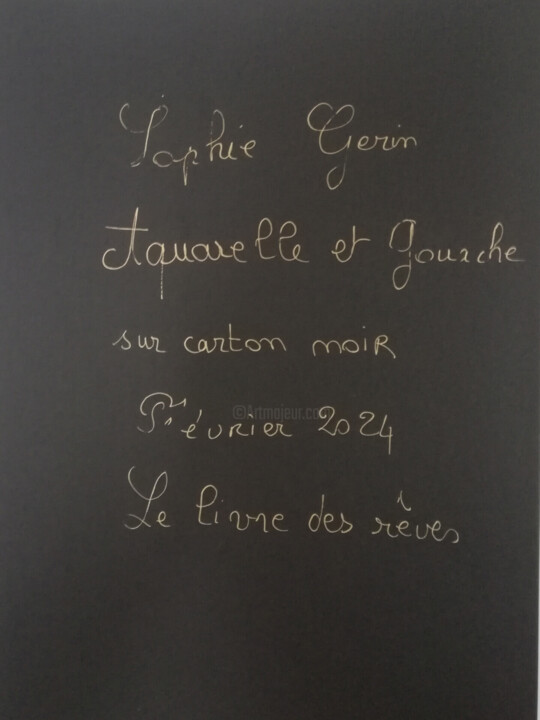 Sophie Gerin
Aquarelle et Gouache
sur carton noir
Février 2024
©Artmajeur.com
Le livre des rêves